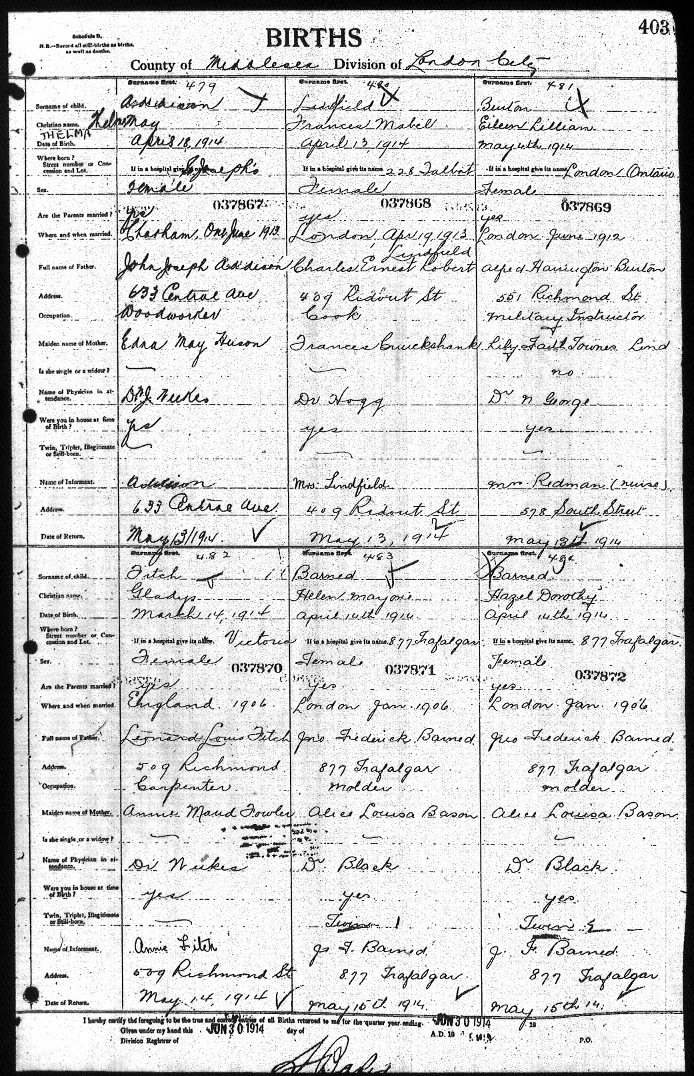 Schedule B.
N. B.—Record all still-births as births, as well as deaths.
BIRTHS
403
County of Middlesex Division of London City
Surname first. 479 Surname first. 480 Surname first. 481
Surname of child. Addison Lindfield Burton
Christian name. Thelma May Frances Mabel Eileen Lillian
THELMA
Date of Birth. April 18, 1914 April 13, 1914 May 4th 1914
Where born? Street number or Concession and Lot. If in a hospital give its name St Joseph's If in a hospital give its name 228 Talbot If in a hospital give its name London Ontario
Sex. Female Female Female
037867 037868 037869
Are the Parents married? Yes yes yes
Where and when married. Chatham, Ont June 1913 London, Apr 19, 1913 London June 1912
Full name of Father. John Joseph Addison Charles Ernest Robert Lindfield Alfred Burton
Address. 633 Central Ave 409 Ridout St 551 Richmond St
Occupation. Woodworker Cook Military Instructor
Maiden name of Mother. Edna May Frances Cruickshank Lily Faith
Is she single or a widow? — — no
Name of Physician in attendance. Dr J. Weekes Dr Hogg Dr N George
Were you in house at time of Birth? yes yes yes
Twin, Triplet, Illegitimate or Still-born. — — —
Name of Informant. Addison Mrs. Lindfield Mrs Redman (nurse)
Address. 633 Central Ave. 409 Ridout St 578 South Street
Date of Return. May 13/1914 May 13, 1914 May 13th 1914
Surname first. 482 Surname first. 483 Surname first. 484
Surname of child. Fitch Barned Barned
Christian name. Gladys Helen Marjorie Hazel Dorothy
Date of Birth. March 14, 1914 April 14th 1914 April 14th 1914
Where born? Street number or Concession and Lot. If in a hospital give its name. Victoria If in a hospital give its name. 877 Trafalgar If in a hospital give its name. 877 Trafalgar.
Sex. Female Female Female
037870 037871 037872
Are the Parents married? Yes yes yes
Where and when married. England 1906 London Jan. 1906 London Jan. 1906
Full name of Father. Leonard Louis Fitch Jno Frederick Barned Jno Frederick Barned
Address. 509 Richmond 877 Trafalgar 877 Trafalgar
Occupation. Carpenter Molder Molder
Maiden name of Mother. Annie Maud Fowler Alice Louisa Bason Alice Louisa Bason
Is she single or a widow? — — —
Name of Physician in attendance. Dr Weekes Dr Black Dr Black
Were you in house at time of Birth? yes yes yes
Twin, Triplet, Illegitimate or Still-born. — Twin 1 Twin 2
Name of Informant. Annie Fitch J. F. Barned J. F. Barned
Address. 509 Richmond St 877 Trafalgar 877 Trafalgar
Date of Return. May 14, 1914 May 15th 1914 May 15th 14
I hereby certify the foregoing to be the true and correct entries of all Births returned to me for the quarter year ending. JUN 30 1914 19
Given under my hand this JUN 30 1914 day of A.D. 19
Division Registrar of P.O.